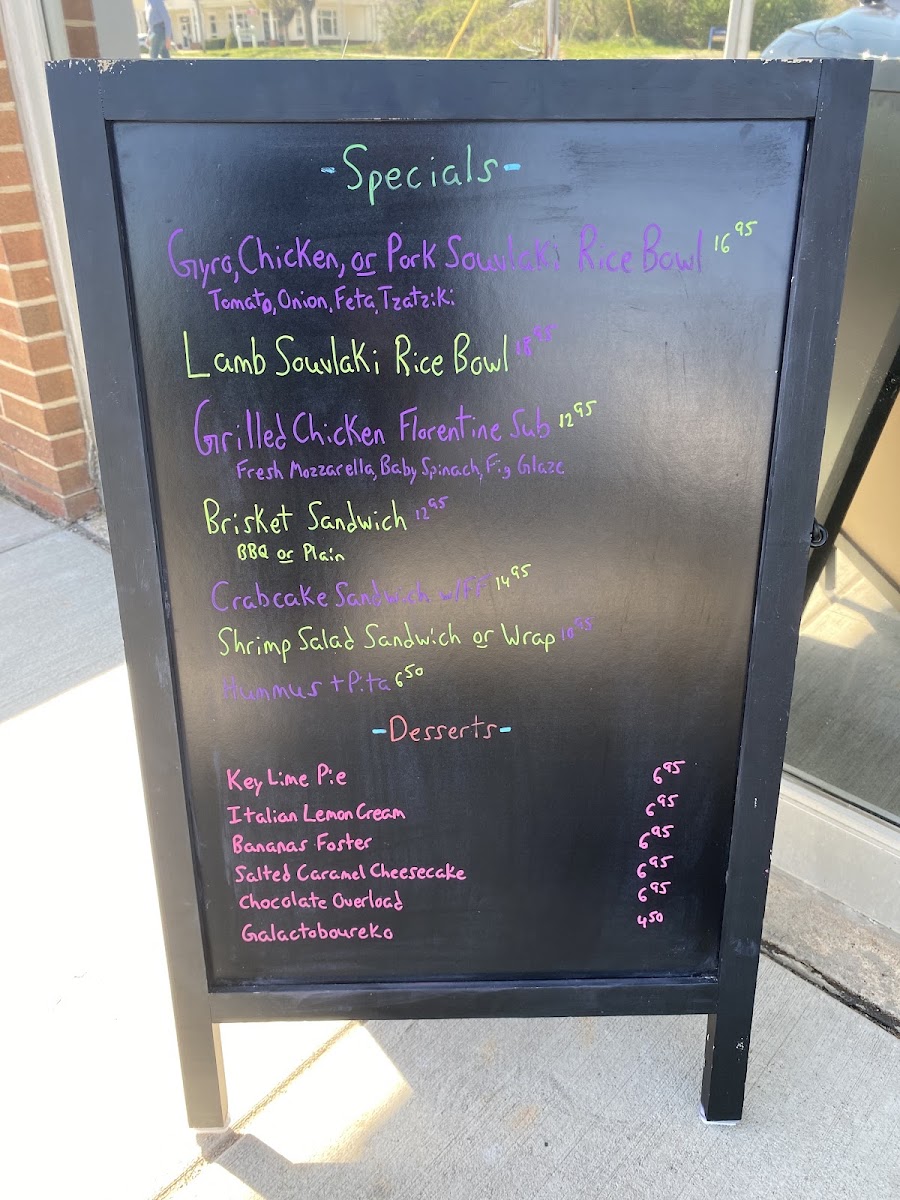 -Specials-
Gyro, Chicken, or Pork Souvlaki Rice Bowl 16 95
Tomato, Onion, Feta, Tzatziki
Lamb Souvlaki Rice Bowl 18 95
Grilled Chicken Florentine Sub 12 95
Fresh Mozzarella, Baby Spinach, Fig Glaze
Brisket Sandwich 12 95
BBQ or Plain
Crabcake Sandwich w/FF 14 95
Shrimp Salad Sandwich or Wrap 10 95
Hummus + Pita 6 50
-Desserts-
Key Lime Pie 6 95
Italian Lemon Cream 6 95
Bananas Foster 6 95
Salted Caramel Cheesecake 6 95
Chocolate Overload 6 95
Galactoboureko 4 50